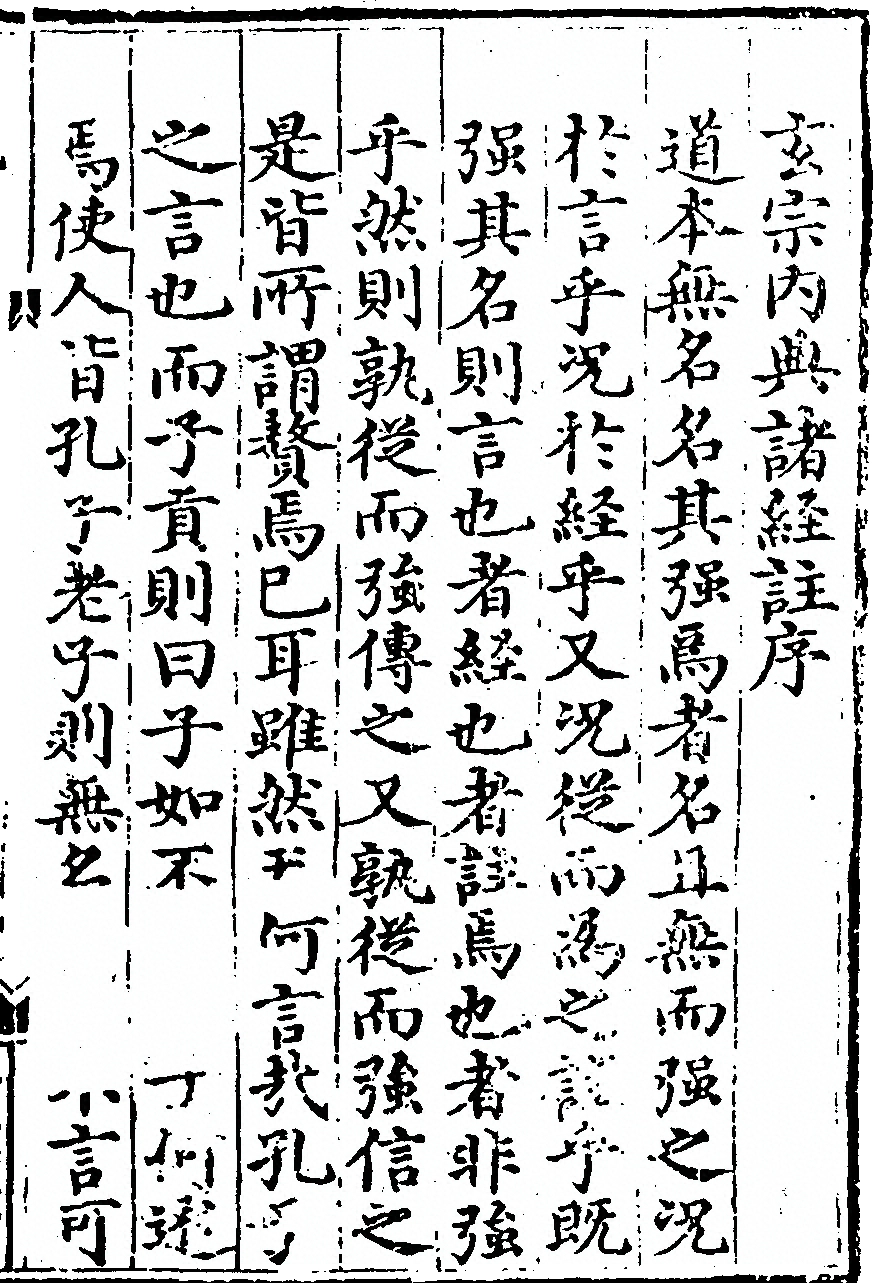 玄宗内典諸経註序
道本無名名其强焉者名且無而强之况
扵言乎况扵経乎又况從而為之註乎既
强其名則言也者経也者註焉也者非強
乎然則孰從而強傳之又孰從而強信之
是皆所謂贅焉已耳雖然予何言哉孔子
之言也而子貢則曰子如不 何述
焉使人皆孔子老子則無名 言可